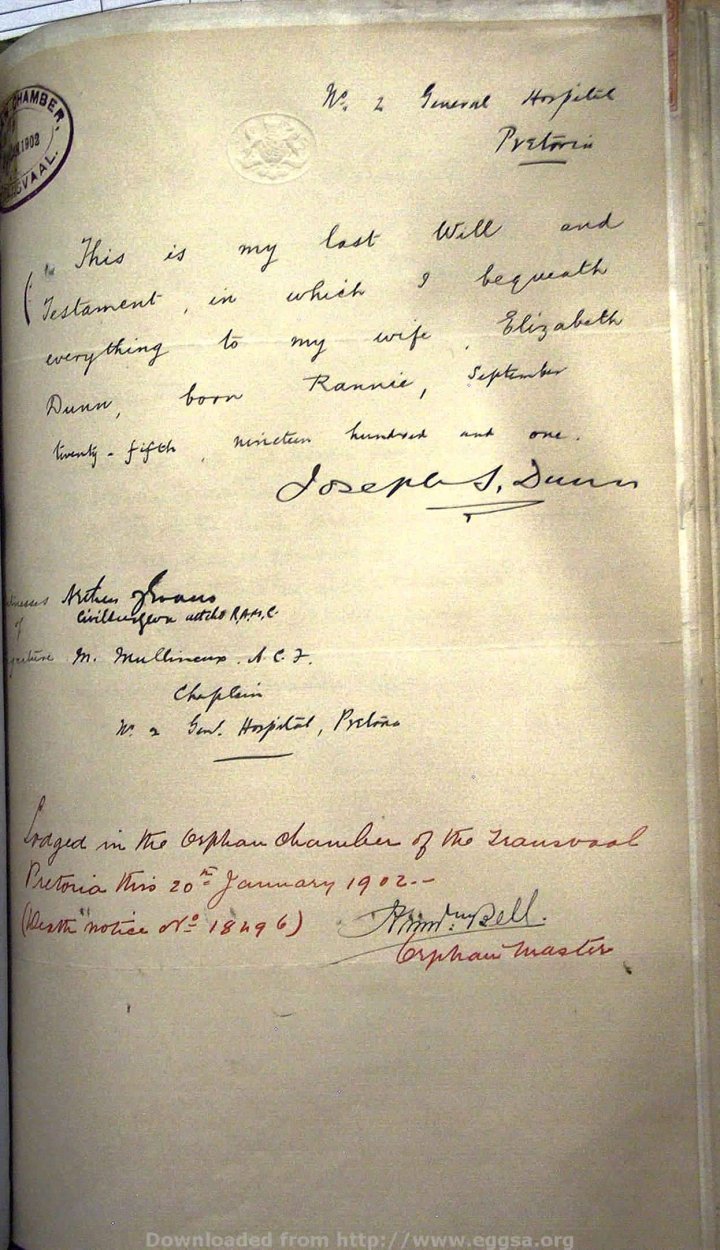 CHAMBER,
1902
SVAAL.
No. 2 General Hospital
Pretoria
This is my last Will and
Testament, in which I bequeath
everything to my wife, Elizabeth
Dunn, born Rannie, September
twenty-fifth, nineteen hundred and one.
Joseph S. Dunn
Witnesses
of
signature
Civil Surgeon attchd R.A.M.C
M. Mullineux. A.C.F.
Chaplain
No. 2 Genl. Hospital, Pretoria
Lodged in the Orphan Chamber of the Transvaal
Pretoria this 20th January 1902.-
(Death notice No 18496)
Bell.
Orphan Master
Downloaded from http://www.eggsa.org